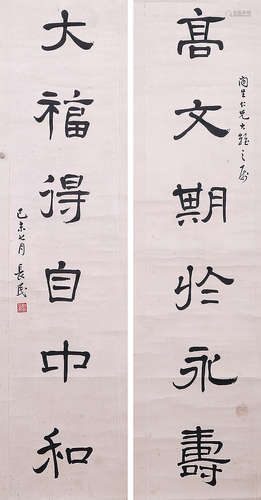 髙文期於永壽
生仁兄大雅之屬
大福得自中和
己未七月 長民